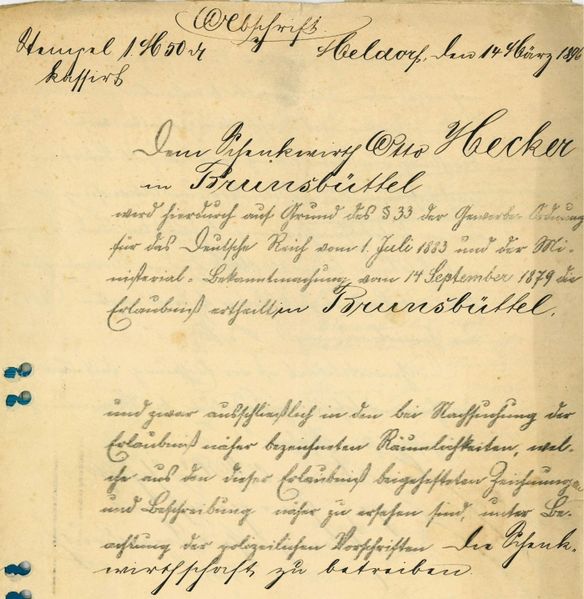 Abschrift
Stempel 1 M 50 ₰
kassirt
Meldorf, den 14 März 1896
Dem Schenkwirth Otto Hecker
in Brunsbüttel
wird hierdurch auf Grund des § 33 der Gewerbe-Ordnung
für das Deutsche Reich vom 1. Juli 1883 und der Mi-
nisterial-Bekanntmachung vom 14 September 1879 die
Erlaubniß ertheilt, in Brunsbüttel,
und zwar ausschließlich in den bei Nachsuchung der
Erlaubniß näher bezeichneten Räumlichkeiten, wel-
che aus den dieser Erlaubniß beigehefteten Zeichnungen
und Beschreibung näher zu ersehen sind, unter Be-
achtung der polizeilichen Vorschriften die Schenk-
wirthschaft zu betreiben.